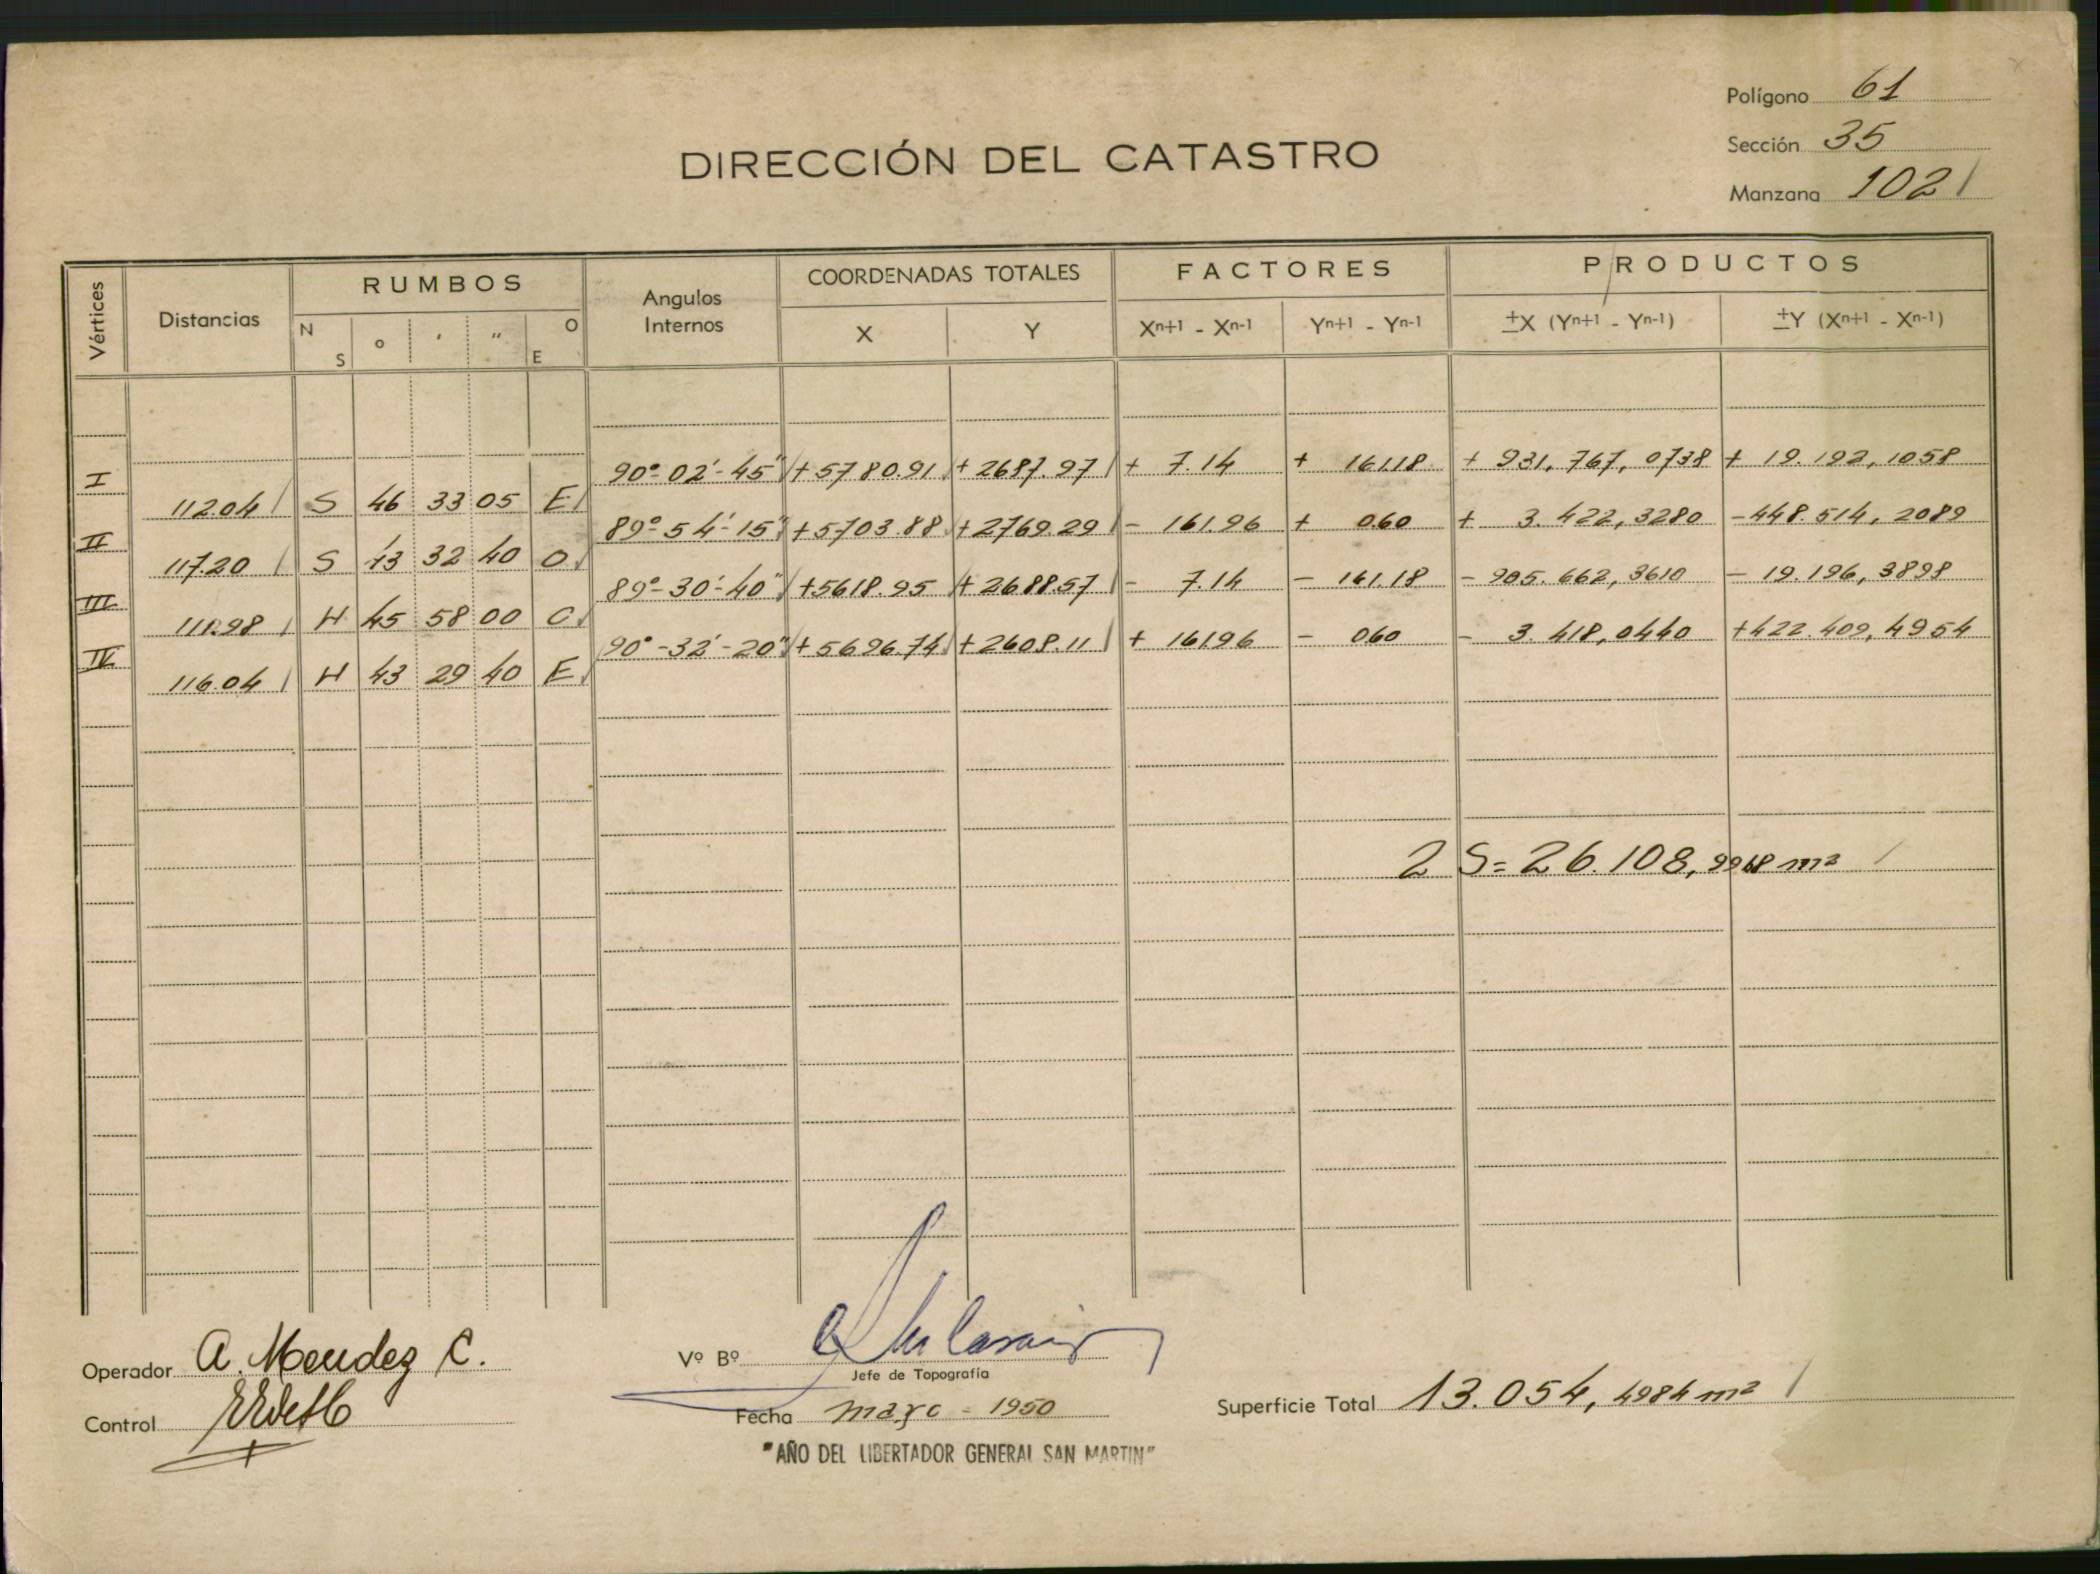 Polígono 61
Sección 35
Manzana 102
DIRECCIÓN DEL CATASTRO
Vértices Distancias RUMBOS Angulos Internos COORDENADAS TOTALES FACTORES PRODUCTOS
N S ° ' " O E X Y Xn+1 - Xn-1 Yn+1 - Yn-1 ±X (Yn+1 - Yn-1) ±Y (Xn+1 - Xn-1)
I 90°-02'-45" +5780.91 +2687.97 + 7.14 + 161.18 + 931.767,0738 + 19.192,1058
112.04 S 46 33 05 E
II 89°-54'-15" +5703.88 +2769.29 - 161.96 + 0.60 + 3.422,3280 -448.514,2089
117.20 S 43 32 40 O
III 89°-30'-40" +5618.95 +2688.57 - 7.14 - 161.18 - 905.662,3610 - 19.196,3898
111.98 N 45 58 00 O
IV 90°-32'-20" +5696.74 +2608.11 + 161.96 - 0.60 - 3.418,0440 +422.409,4954
116.04 N 43 29 40 E
2 S = 26.108,9968 m²
Operador A. Mendez C.
Control
Vº Bº
Jefe de Topografía
Fecha marzo - 1950
"AÑO DEL LIBERTADOR GENERAL SAN MARTIN"
Superficie Total 13.054,4984 m²